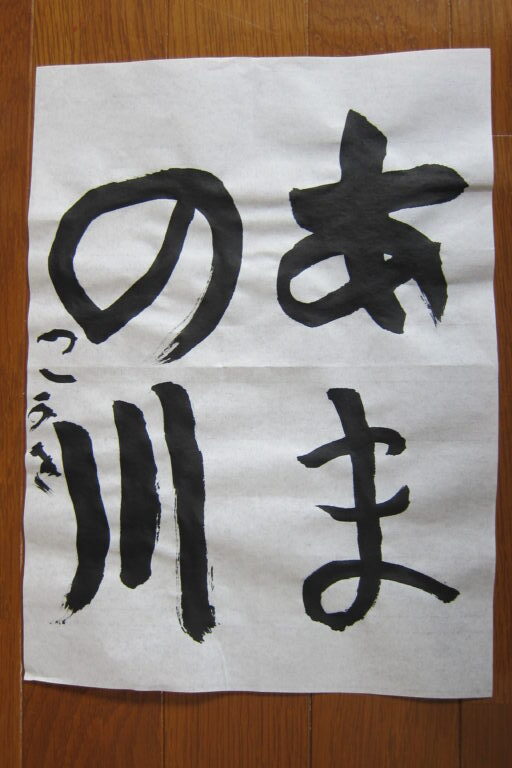 あま
の川
こうき